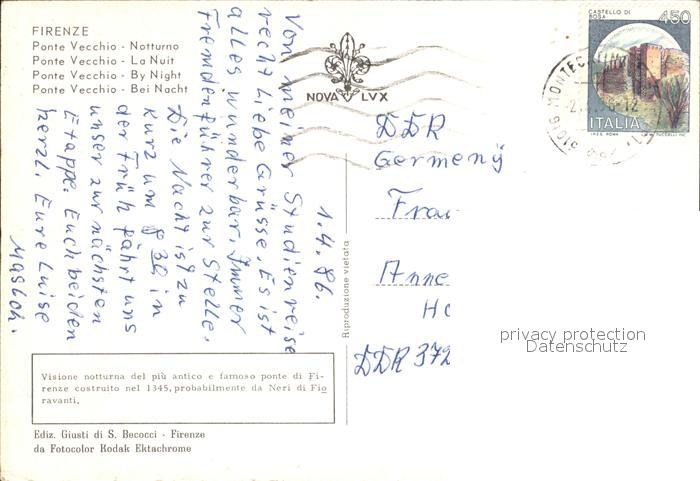 FIRENZE
Ponte Vecchio - Notturno
Ponte Vecchio - La Nuit
Ponte Vecchio - By Night
Ponte Vecchio - Bei Nacht
NOVA LVX
CASTELLO DI
BOSA
450
ITALIA
1.4.86.
Von meiner Studienreise
recht Liebe Grüsse. Es ist
alles wunderbar. Immer
Fremdenführer zur Stelle.
Die Nacht ist zu
kurz um 8 30 in
der Früh fährt uns
unser zur nächsten
Etappe. Euch beiden
herzl. Eure Luise
Masloh.
DDR
Germeny
Frau
Anne
DDR 372
Riproduzione vietata
privacy protection
Datenschutz
Visione notturna del più antico e famoso ponte di Fi-
renze costruito nel 1345, probabilmente da Neri di Fio
ravanti.
Ediz. Giusti di S. Becocci - Firenze
da Fotocolor Kodak Ektachrome